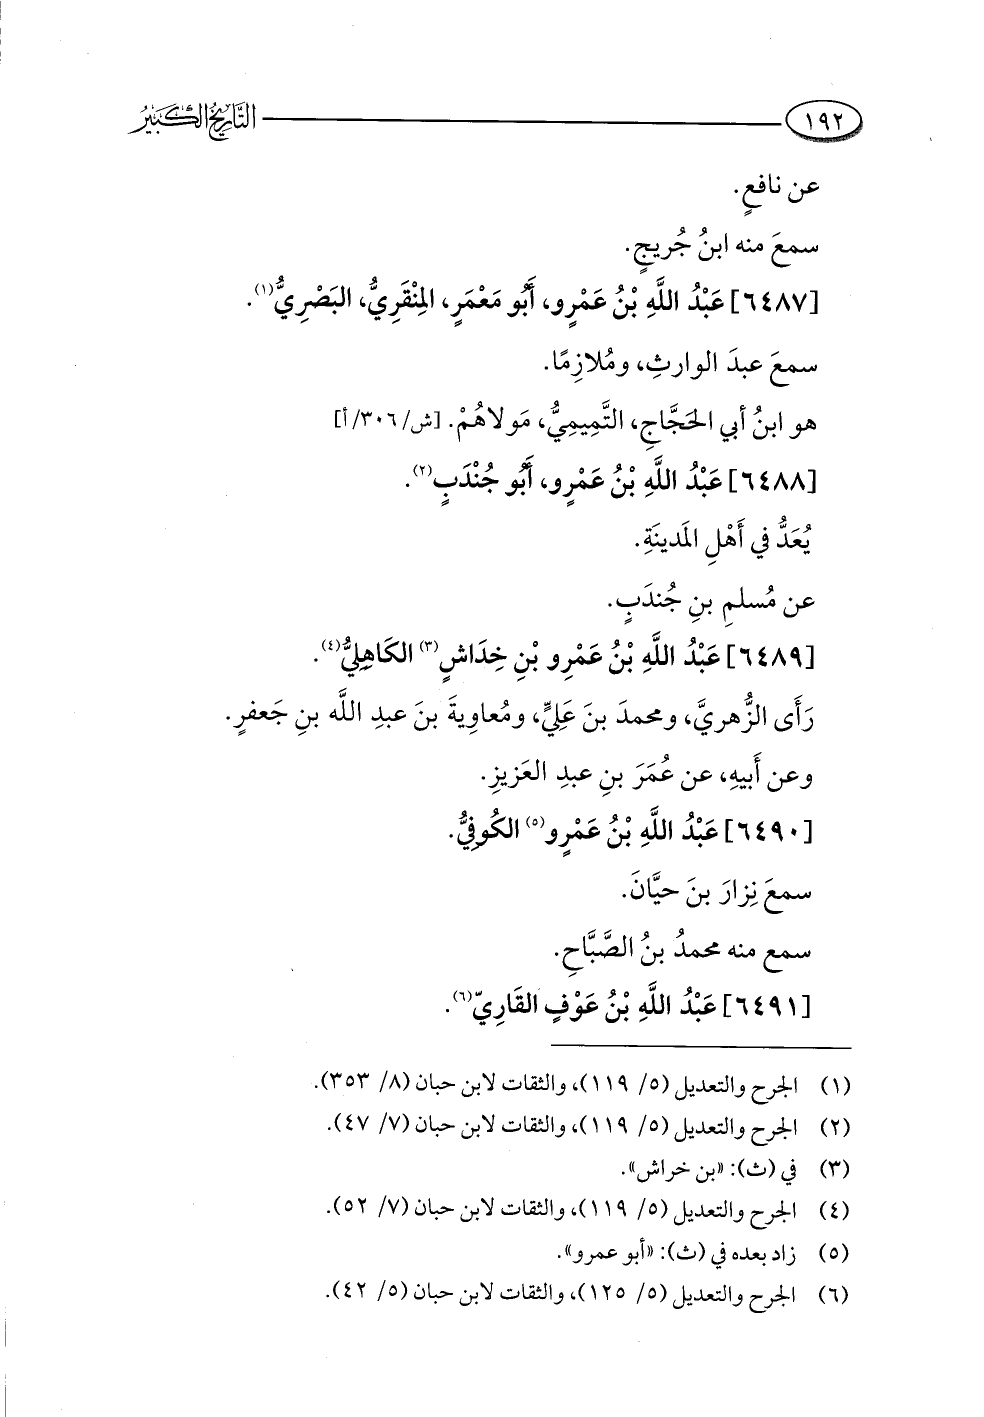 ١٩٢ التَّارِيخُ الكَبِيرُ
عن نافعٍ.
سمعَ منه ابنُ جُريجٍ.
[٦٤٨٧] عَبْدُ اللَّهِ بْنُ عَمْرٍو، أَبُو مَعْمَرٍ، المِنْقَرِيُّ، البَصْرِيُّ(١).
سمعَ عبدَ الوارثِ، ومُلازِمًا.
هو ابنُ أبي الحَجَّاجِ، التَّمِيمِيُّ، مَولاهُمْ. [ش/ ٣٠٦/ أ]
[٦٤٨٨] عَبْدُ اللَّهِ بْنُ عَمْرٍو، أَبُو جُنْدَبٍ(٢).
يُعَدُّ في أَهْلِ المَدينَةِ.
عن مُسلمِ بنِ جُندَبٍ.
[٦٤٨٩] عَبْدُ اللَّهِ بْنُ عَمْرِو بْنِ خِدَاشٍ(٣) الكَاهِلِيُّ(٤).
رَأَى الزُّهريَّ، ومحمدَ بنَ عَلِيٍّ، ومُعاوِيةَ بنَ عبدِ اللَّه بنِ جَعفرٍ.
وعن أَبيهِ، عن عُمَرَ بنِ عبدِ العَزيزِ.
[٦٤٩٠] عَبْدُ اللَّهِ بْنُ عَمْرٍو(٥) الكُوفِيُّ.
سمعَ نِزارَ بنَ حيَّانَ.
سمع منه محمدُ بنُ الصَّبَّاحِ.
[٦٤٩١] عَبْدُ اللَّهِ بْنُ عَوْفٍ القَارِيّ(٦).
(١) الجرح والتعديل (٥/ ١١٩)، والثقات لابن حبان (٨/ ٣٥٣).
(٢) الجرح والتعديل (٥/ ١١٩)، والثقات لابن حبان (٧/ ٤٧).
(٣) في (ث): «بن خراش».
(٤) الجرح والتعديل (٥/ ١١٩)، والثقات لابن حبان (٧/ ٥٢).
(٥) زاد بعده في (ث): «أبو عمرو».
(٦) الجرح والتعديل (٥/ ١٢٥)، والثقات لابن حبان (٥/ ٤٢).